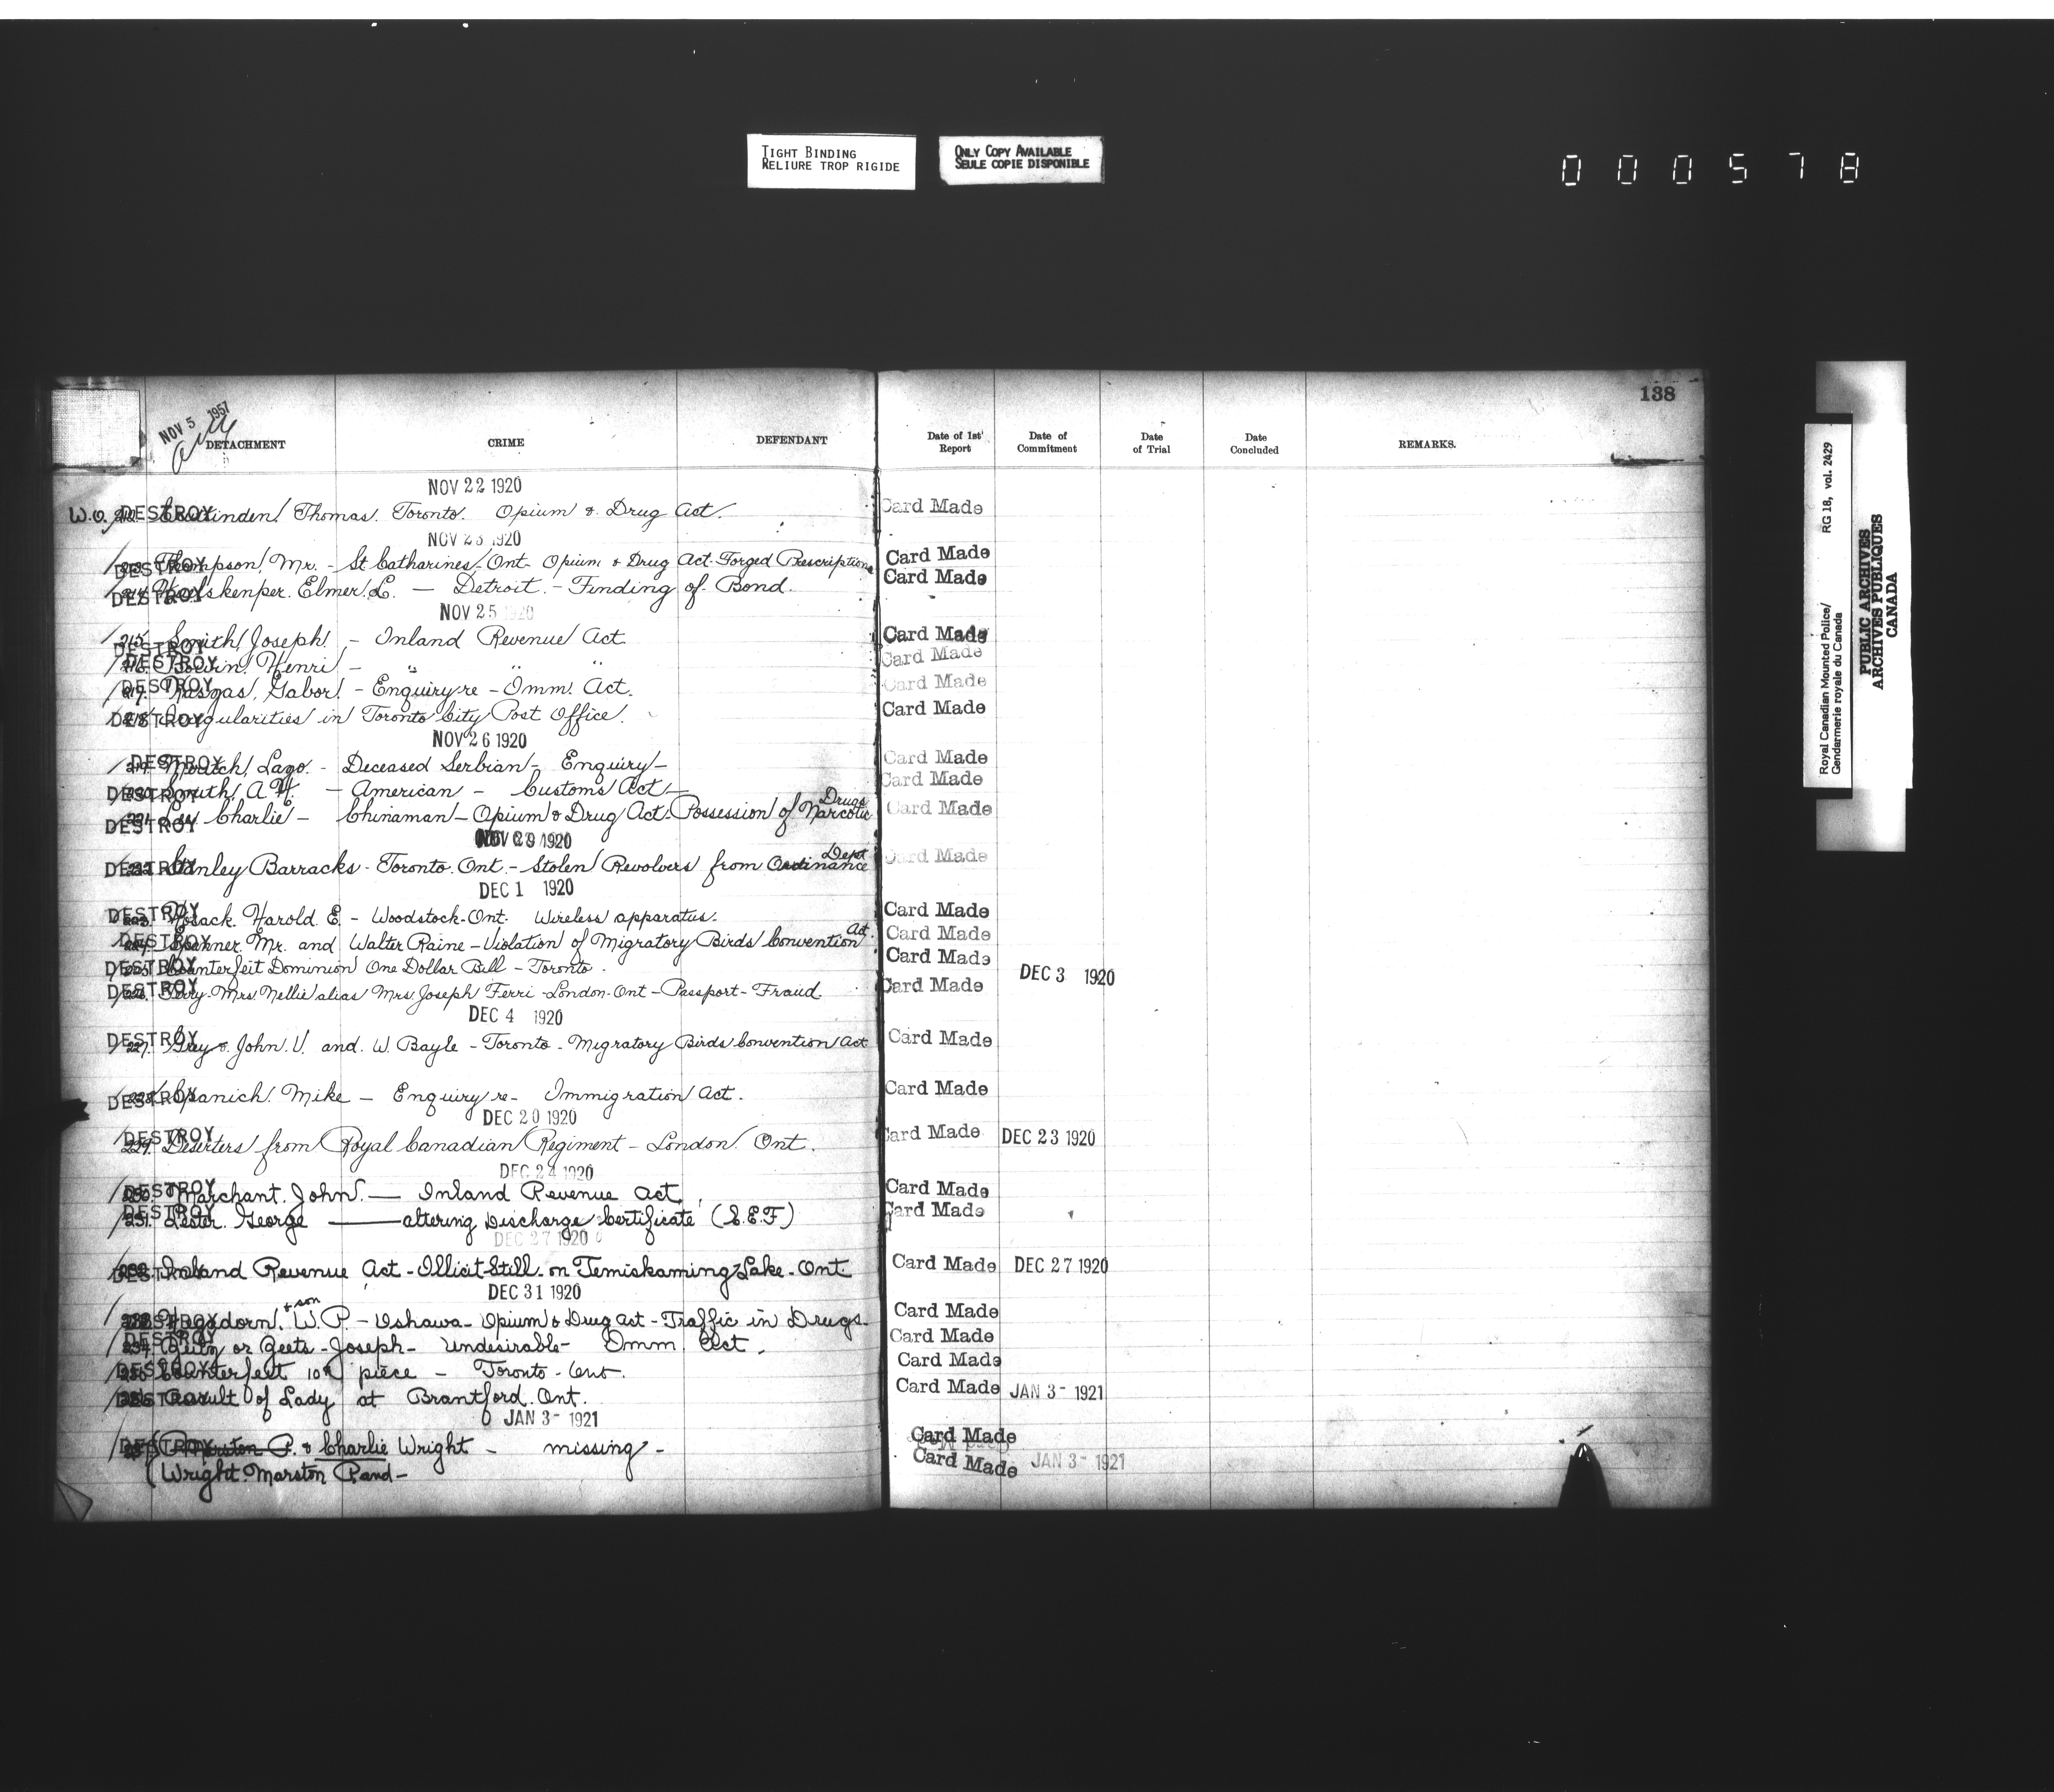 TIGHT BINDING
RELIURE TROP RIGIDE
ONLY COPY AVAILABLE
SEULE COPIE DISPONIBLE
000578
138
NOV 5 1957
DETACHMENT CRIME DEFENDANT Date of 1st Report Date of Commitment Date of Trial Date Concluded REMARKS.
NOV 22 1920
W.O. DESTROY Thomas. Toronto. Opium & Drug Act. Card Made
NOV 23 1920
DESTROY Thompson, Mr. - St Catharines, Ont- Opium & Drug Act-Forged Prescriptions Card Made
DESTROY Elmer. L. — Detroit. - Finding of Bond. Card Made
NOV 25 1920
215. DESTROY Smith, Joseph, - Inland Revenue Act. Card Made
DESTROY Henri, - " " " Card Made
217. DESTROY Gabor, - Enquiry re - Imm. Act. Card Made
218. DESTROY Irregularities in Toronto City Post Office. Card Made
NOV 26 1920
219. DESTROY Lazo. - Deceased Serbian - Enquiry - Card Made
220. DESTROY Smith, A. H. - American - Customs Act - Card Made
221. DESTROY Charlie - Chinaman - Opium & Drug Act. Possession of Narcotic Drugs Card Made
NOV 29 1920
222. DESTROY Stanley Barracks - Toronto. Ont. - Stolen Revolvers from Ordinance Dept Card Made
DEC 1 1920
223. DESTROY Harold E. - Woodstock. Ont. Wireless apparatus. Card Made
224. DESTROY Mr. and Walter Raine - Violation of Migratory Birds Convention Act. Card Made
225. DESTROY Counterfeit Dominion One Dollar Bill - Toronto. Card Made
226. DESTROY Perry. Mrs. Nellie alias Mrs. Joseph Ferri - London. Ont - Passport - Fraud. Card Made DEC 3 1920
DEC 4 1920
227. DESTROY Gray & John. V. and W. Bayle - Toronto - Migratory Birds Convention Act Card Made
228. DESTROY Mike - Enquiry re - Immigration Act. Card Made
DEC 20 1920
229. DESTROY Deserters from Royal Canadian Regiment - London. Ont. Card Made DEC 23 1920
DEC 24 1920
230. DESTROY Marchant. John. — Inland Revenue Act. Card Made
231. DESTROY Lester. George — altering Discharge Certificate (C.E.F) Card Made
DEC 27 1920
232. DESTROY Inland Revenue Act - Illicit Still - on Temiskaming Lake - Ont. Card Made DEC 27 1920
DEC 31 1920
233. DESTROY Hagedorn. W. P. + son - Oshawa - Opium & Drug Act - Traffic in Drugs - Card Made
234. DESTROY or Geets - Joseph - Undesirable - Imm. Act. Card Made
235. DESTROY Counterfeit 10¢ piece - Toronto - Ont. Card Made
236. DESTROY Assault of Lady at Brantford. Ont. Card Made JAN 3 - 1921
JAN 3 - 1921
DESTROY P. & Charlie Wright - missing - Card Made
(Wright. Marston P. and - Card Made JAN 3 - 1921
Royal Canadian Mounted Police/ RG 18, vol. 2429
Gendarmerie royale du Canada
PUBLIC ARCHIVES
ARCHIVES PUBLIQUES
CANADA